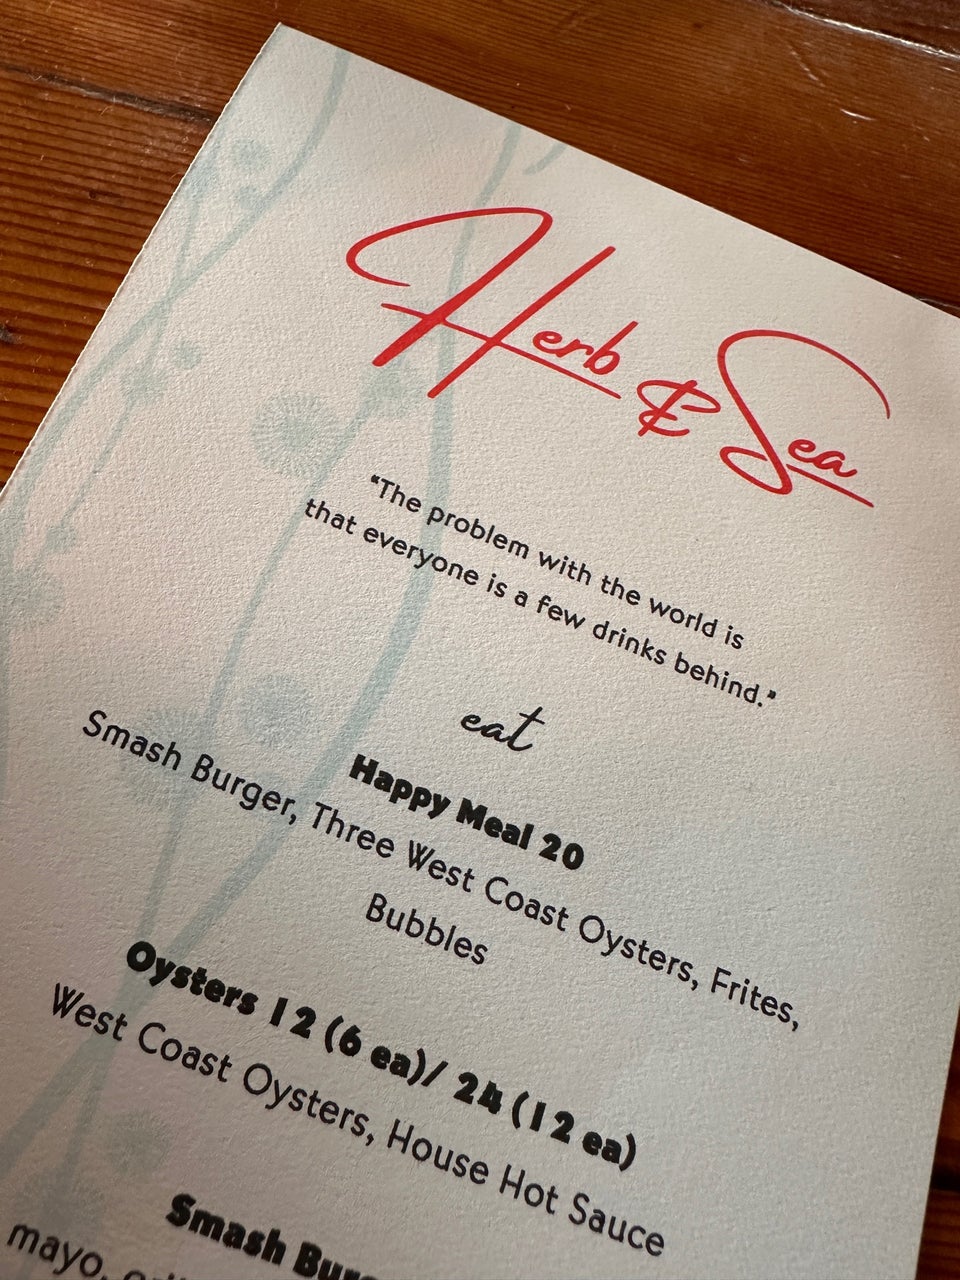 Herb & Sea
"The problem with the world is
that everyone is a few drinks behind."
eat
Happy Meal 20
Smash Burger, Three West Coast Oysters, Frites,
Bubbles
Oysters 12 (6 ea)/ 24 (12 ea)
West Coast Oysters, House Hot Sauce
Smash
mayo,